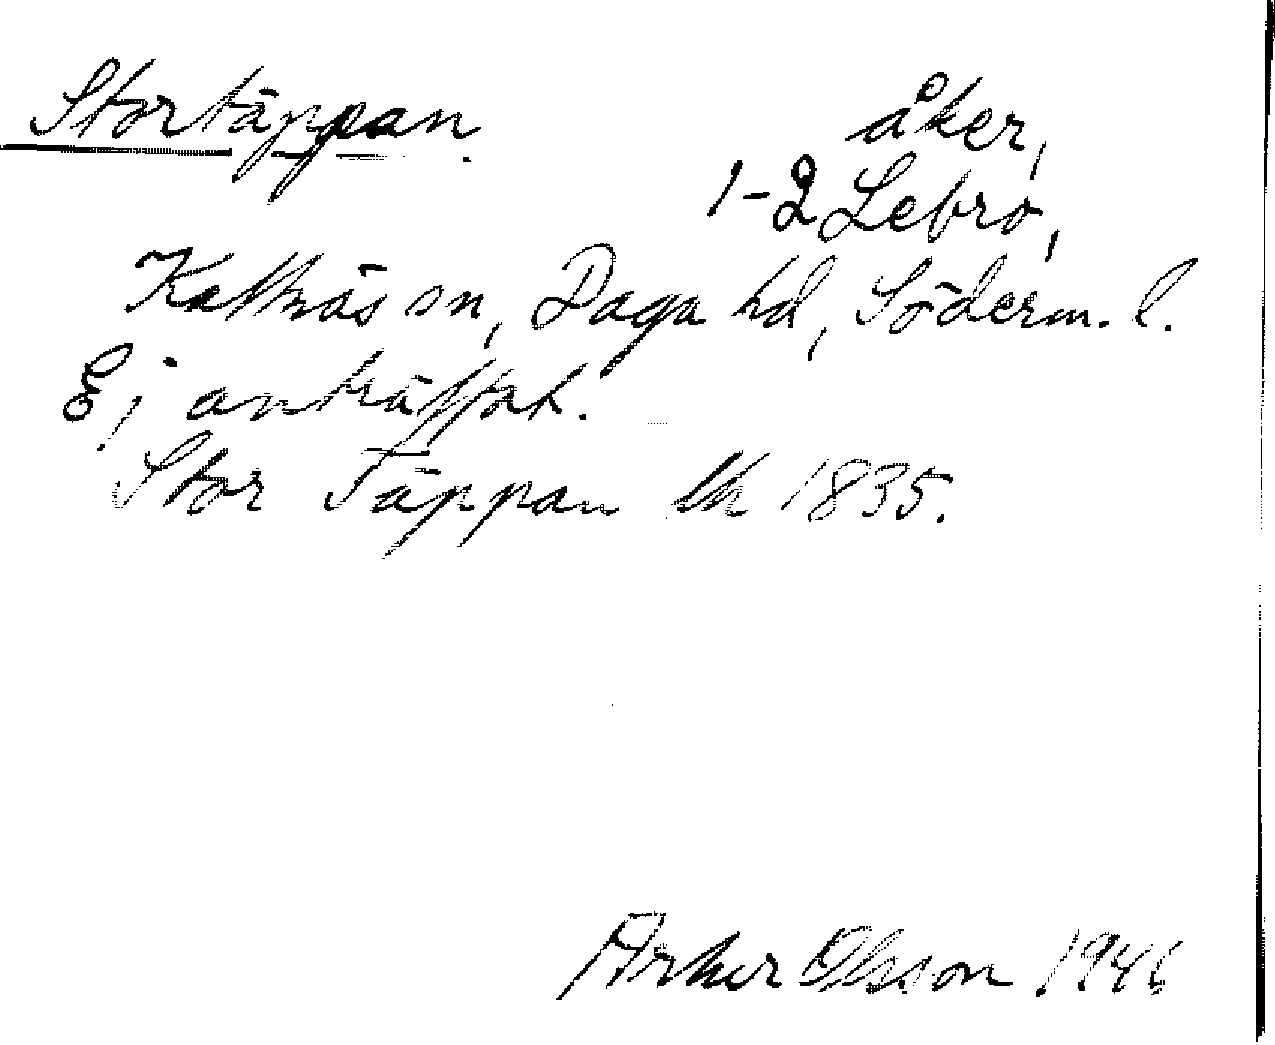 Stortäppan.
åker,
1-2 Lebro,
Kattnäs sn, Daga hd, Söderm. l.
Ej anträffat.
Stor Täppan lh 1835.
Arthur Olsson 1946